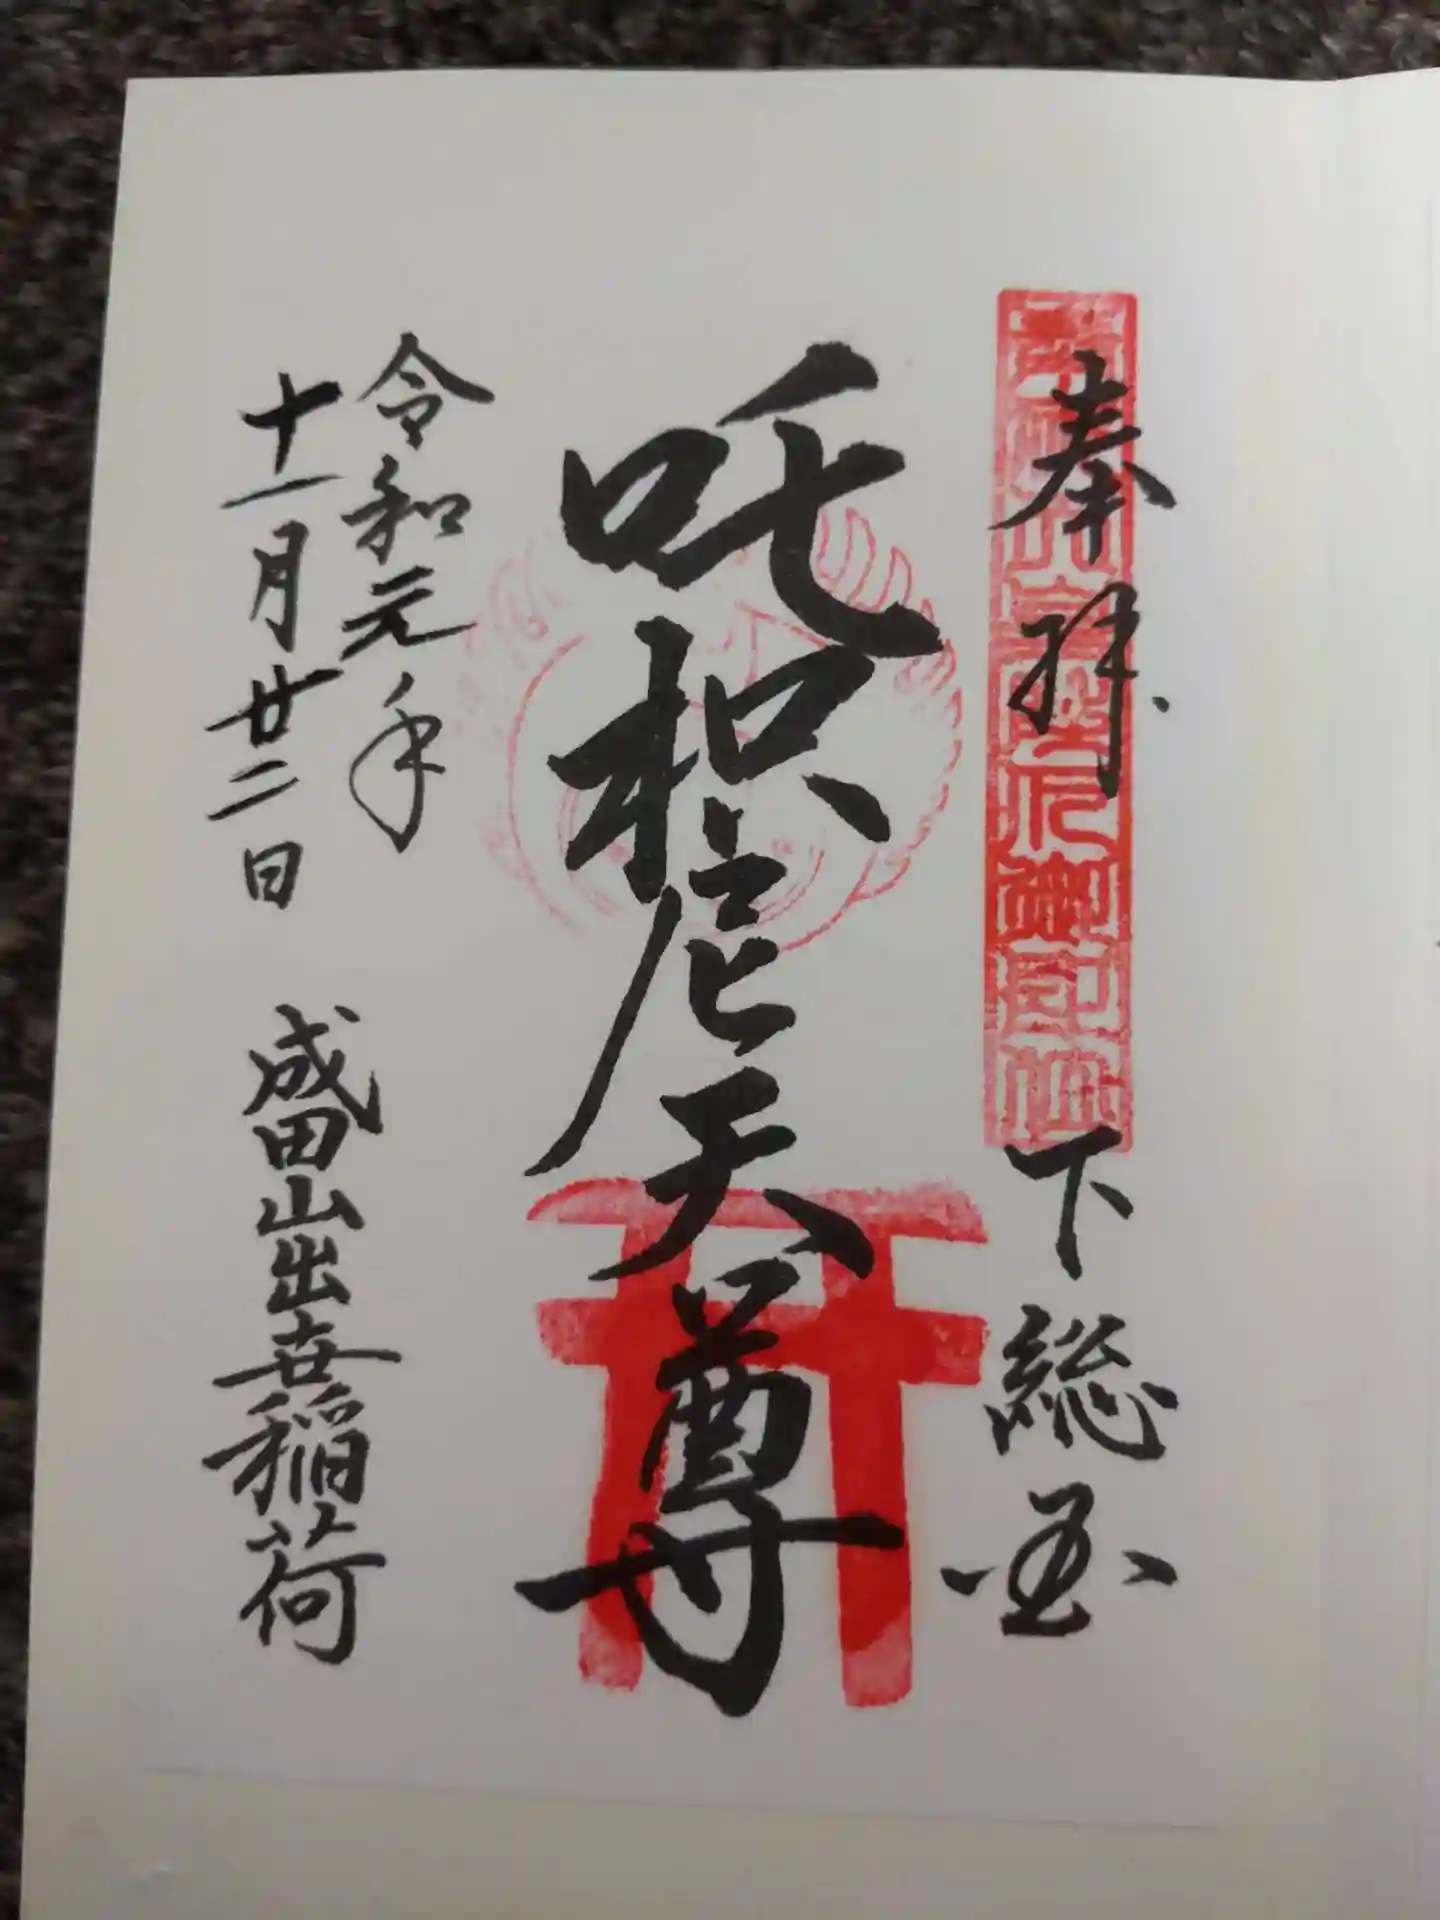 奉拝
下総国
吒枳尼天尊
令和元年
十一月廿二日
成田山出世稲荷